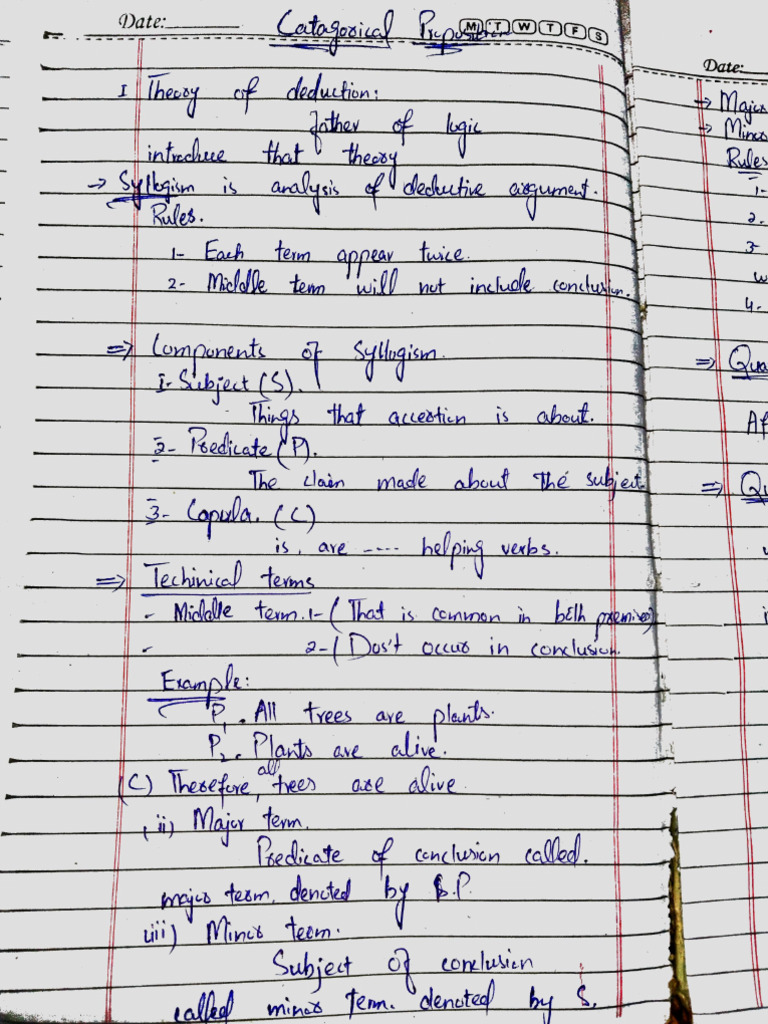 Date:
Catagorical Proposition
M T W T F S
I Theory of deduction:
father of logic
introduce that theory
→ Syllogism is analysis of deductive argument.
Rules.
1- Each term appear twice.
2- Middle term will not include conclusion.
⇒ Components of Syllogism.
1- Subject (S).
Things that accertion is about.
2- Predicate (P).
The claim made about the subject.
3- Copula. (C)
is, are ---- helping verbs.
⇒ Techinical terms
- Middle term. 1- (That is common in both premises)
- 2- (Dos't occur in conclusion.
Example:
P1. All trees are plants.
P2. Plants are alive.
(C) Therefore, all trees are alive
ii) Major term.
Predicate of conclusion called.
major term. denoted by P.
iii) Minor term.
Subject of conclusion
called minor term. denoted by S.
Date:
→ Major
→ Minor
Rules
1-
2.
3
4.
⇒
Af
⇒